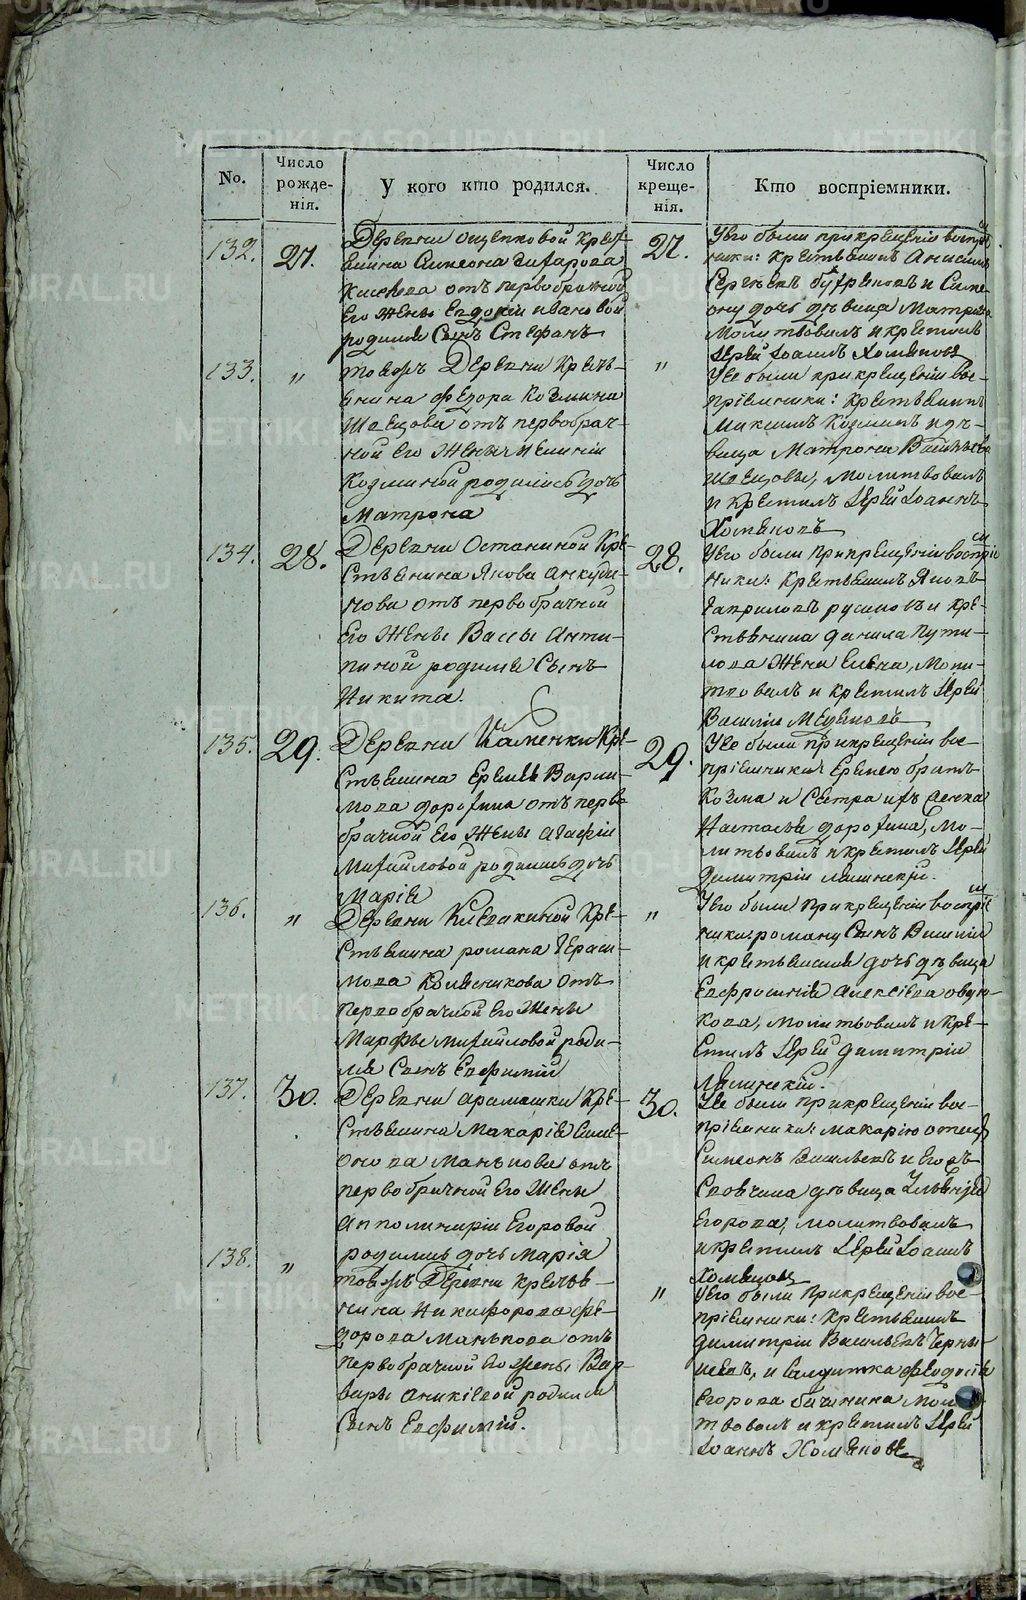 No.
Число рожденія.
У кого кто родился.
Число крещенія.
Кто воспріемники.
132.
27.
Деревни Ощепковой Крест-
янина Симеона
отъ первобрачной
Его Жены Евдокіи Ивановой
родился Сынъ Стефанъ
27.
Уего были прикрещеніи воспріем-
ники: Крестьянинъ Анисимъ
Сергѣевъ и Симе-
ону дочь дѣвица Матрона
Молитвовалъ и крестилъ
Іерей Іоаннъ Хомяковъ
133.
"
тояжъ Деревни Кресть-
янина Федора Козмина
Шевцова отъ первобрач-
ной Его Жены
Козминой родилась дочь
Матрона
"
Уее были прикрещеніи вос-
пріемники: Крестьянинъ
Максимъ Козминъ и дѣ-
вица Матрона Васильева
Шевцовы, Молитвовалъ
и крестилъ Іерей Іоаннъ
Хомяковъ
134.
28.
Деревни Останиной Кре-
стьянина Якова Анкуди-
нова отъ первобрачной
Его Жены Вассы Анти-
пиной родился Сынъ
Никита.
28.
Уего были прикрещеніи воспріем-
ники: Крестьянинъ Яковъ
Гавриловъ Русиновъ и Кре-
стьянина Данила Пути-
лова Жена Елена, Моли-
твовалъ и крестилъ Іерей
Василіи
135.
29.
Деревни Каменки Кре-
стьянина Еремѣя Варфи-
мова Дорофина отъ перво-
брачной Его Жены Агафіи
Михайловой родилась дочь
Марія
29.
Уее были прикрещеніи вос-
пріемники: Еремею братъ
Козма и Сестра ихъ
Настасья Дорофина, Мо-
литвовалъ и крестилъ Іерей
Димитріи
136.
"
Деревни Клевакиной Кре-
стьянина Романа Гераси-
мова Колясникова отъ
первобрачной Его Жены
Марфы Михайловой роди-
лся Сынъ Евфимій
"
Уего были прикрещеніи воспріем-
ники: Роману Сынъ Василіи
и крестьянская дочь дѣвица
Евфросинія Алексѣева
Молитвовалъ и Кре-
стилъ Іерей Димитріи
137.
30.
Деревни Арамашки Кре-
стьянина Макарія Симе-
онова Манькова отъ
первобрачной Его Жены
Апполинаріи Егоровой
родилась дочь Марія
30.
Уее были прикрещеніи вос-
пріемники: Макарію отецъ
Симеонъ Васильевъ и Его
дѣвица
Егорова, Молитвовалъ
и крестилъ Іерей Іоаннъ
Хомяковъ
138.
"
тояжъ Деревни Крестья-
нина Никифорова Фе-
дорова Манькова отъ
первобрачной Его жены Вар-
вары Аникіевой родился
Сынъ Евфимій.
"
Уего были прикрещеніи вос-
пріемники: Крестьянинъ
Димитріи Васильевъ Черны-
шевъ, и Салдатка Феодосія
Егорова Моли-
твовалъ и крестилъ Іерей
Іоаннъ Хомяковъ
METRIKI.GASO-URAL.RU